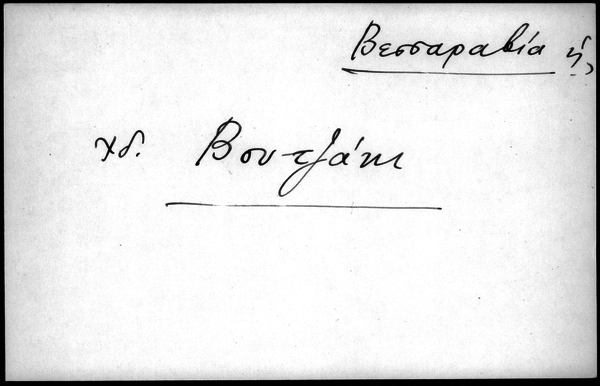 Βεσσαραβία ἡ,
χδ. Βουτζάκι